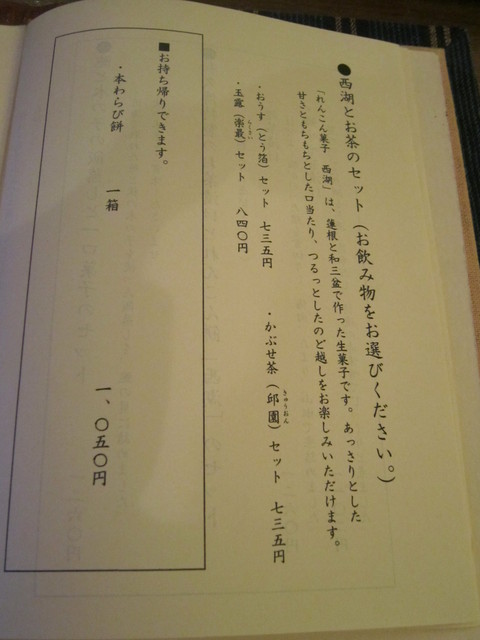 ●西湖とお茶のセット（お飲み物をお選びください。）
「れんこん菓子　西湖」は、蓮根と和三盆で作った生菓子です。あっさりとした
甘さともちもちとした口当たり、つるっとしたのど越しをお楽しみいただけます。
・おうす（とう箔）セット　七三五円
・かぶせ茶（邱園）セット　七三五円
きゅうおん
・玉露（楽最）セット　八四〇円
■お持ち帰りできます。
・本わらび餅　一箱　一、〇五〇円